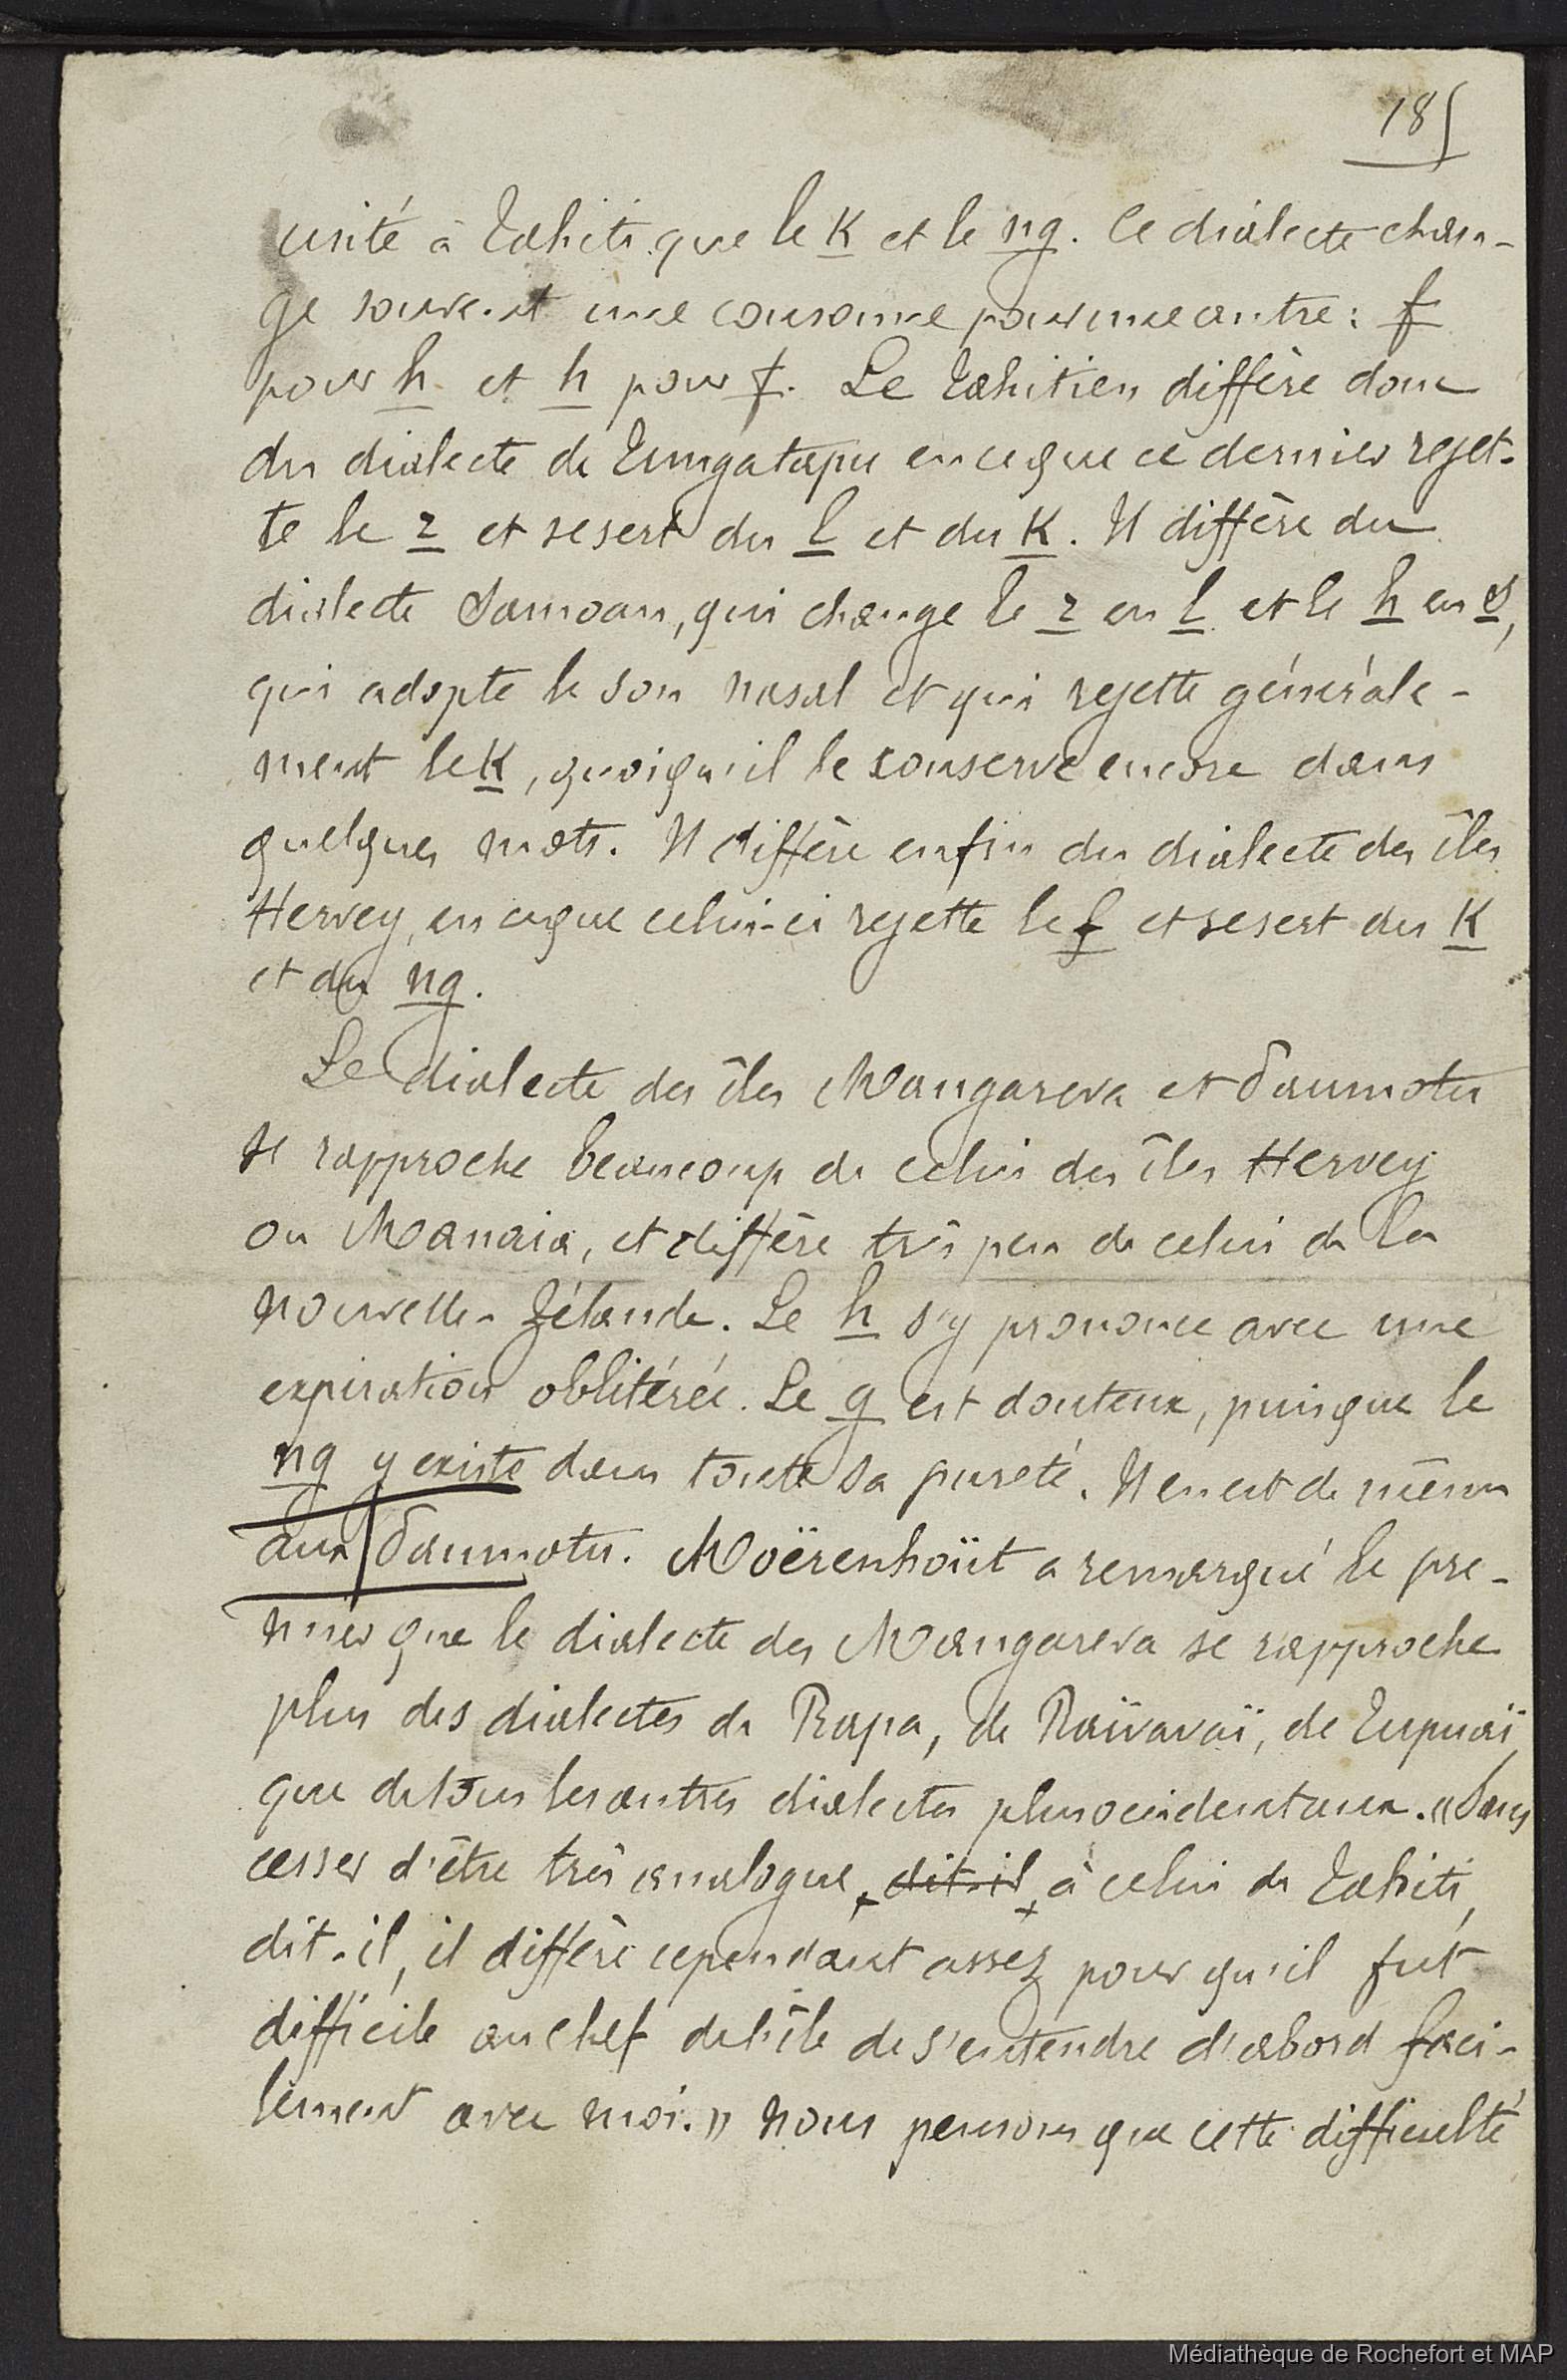 185
usité à Tahiti que le k et le ng. Ce dialecte chan-
ge souvent une consonne pour une autre : f
pour h et h pour f. Le Tahitien diffère donc
du dialecte de Tungatapu en ce que ce dernier rejet-
te le r et se sert du l et du k. Il diffère du
dialecte Samoan, qui change le r en l et le h en s,
qui adopte le son nasal et qui rejette générale-
ment le k, quoiqu'il le conserve encore dans
quelques mots. Il diffère enfin du dialecte des îles
Hervey, en ce que celui-ci rejette le f et se sert du k
et du ng.
Le dialecte des îles Mangareva et Paumotu
se rapproche beaucoup de celui des îles Hervey
ou Manaia, et diffère très peu de celui de la
nouvelle-Zélande. Le h s'y prononce avec une
expiration oblitérée. Le g est douteux, puisque le
ng y existe dans toute sa pureté. Il en est de même
aux Paumotu. Moërenhoüt a remarqué le pre-
mier que le dialecte des Mangareva se rapproche
plus des dialectes de Rapa, de Raïvavaï, de Tupuaï,
que de tous les autres dialectes plus occidentaux. « Sans
cesser d'être très analogue, dit-il, à celui de Tahiti,
dit-il, il diffère cependant assez pour qu'il fut
difficile au chef de l'île de s'entendre d'abord faci-
lement avec moi. » nous pensons que cette difficulté
Médiathèque de Rochefort et MAP